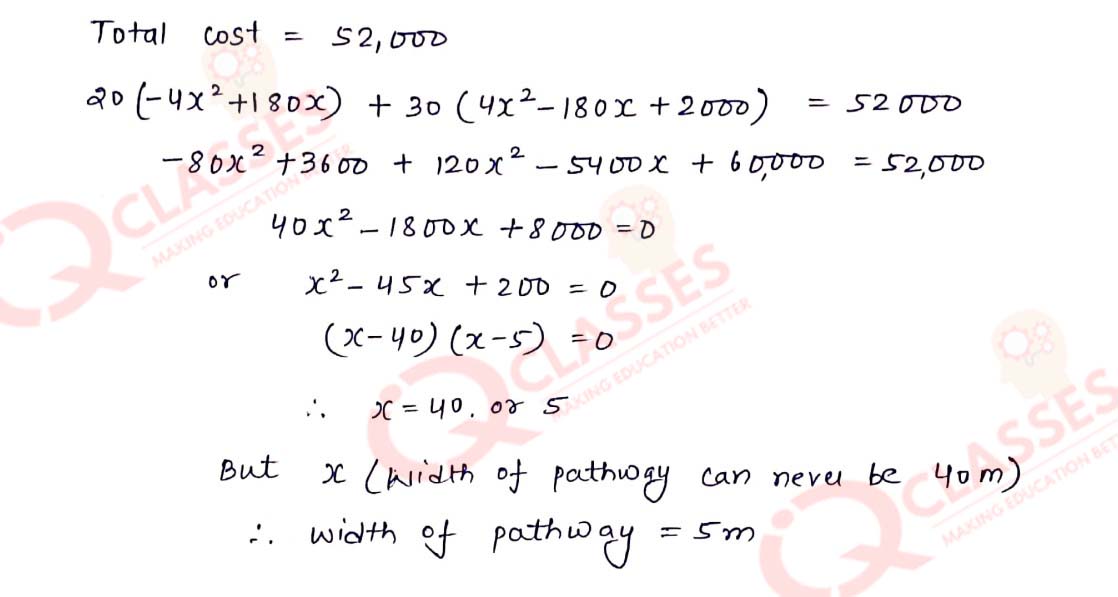 Total cost = 52,000
20 (-4x² + 180x) + 30 (4x² - 180x + 2000) = 52000
-80x² + 3600 + 120x² - 5400x + 60,000 = 52,000
40x² - 1800x + 8000 = 0
or x² - 45x + 200 = 0
(x - 40) (x - 5) = 0
∴ x = 40. or 5
But x (width of pathway can never be 40m)
∴ width of pathway = 5m
CLASSES
MAKING EDUCATION BETTER
CLASSES
MAKING EDUCATION BETTER
CLASSES
MAKING EDUCATION BET